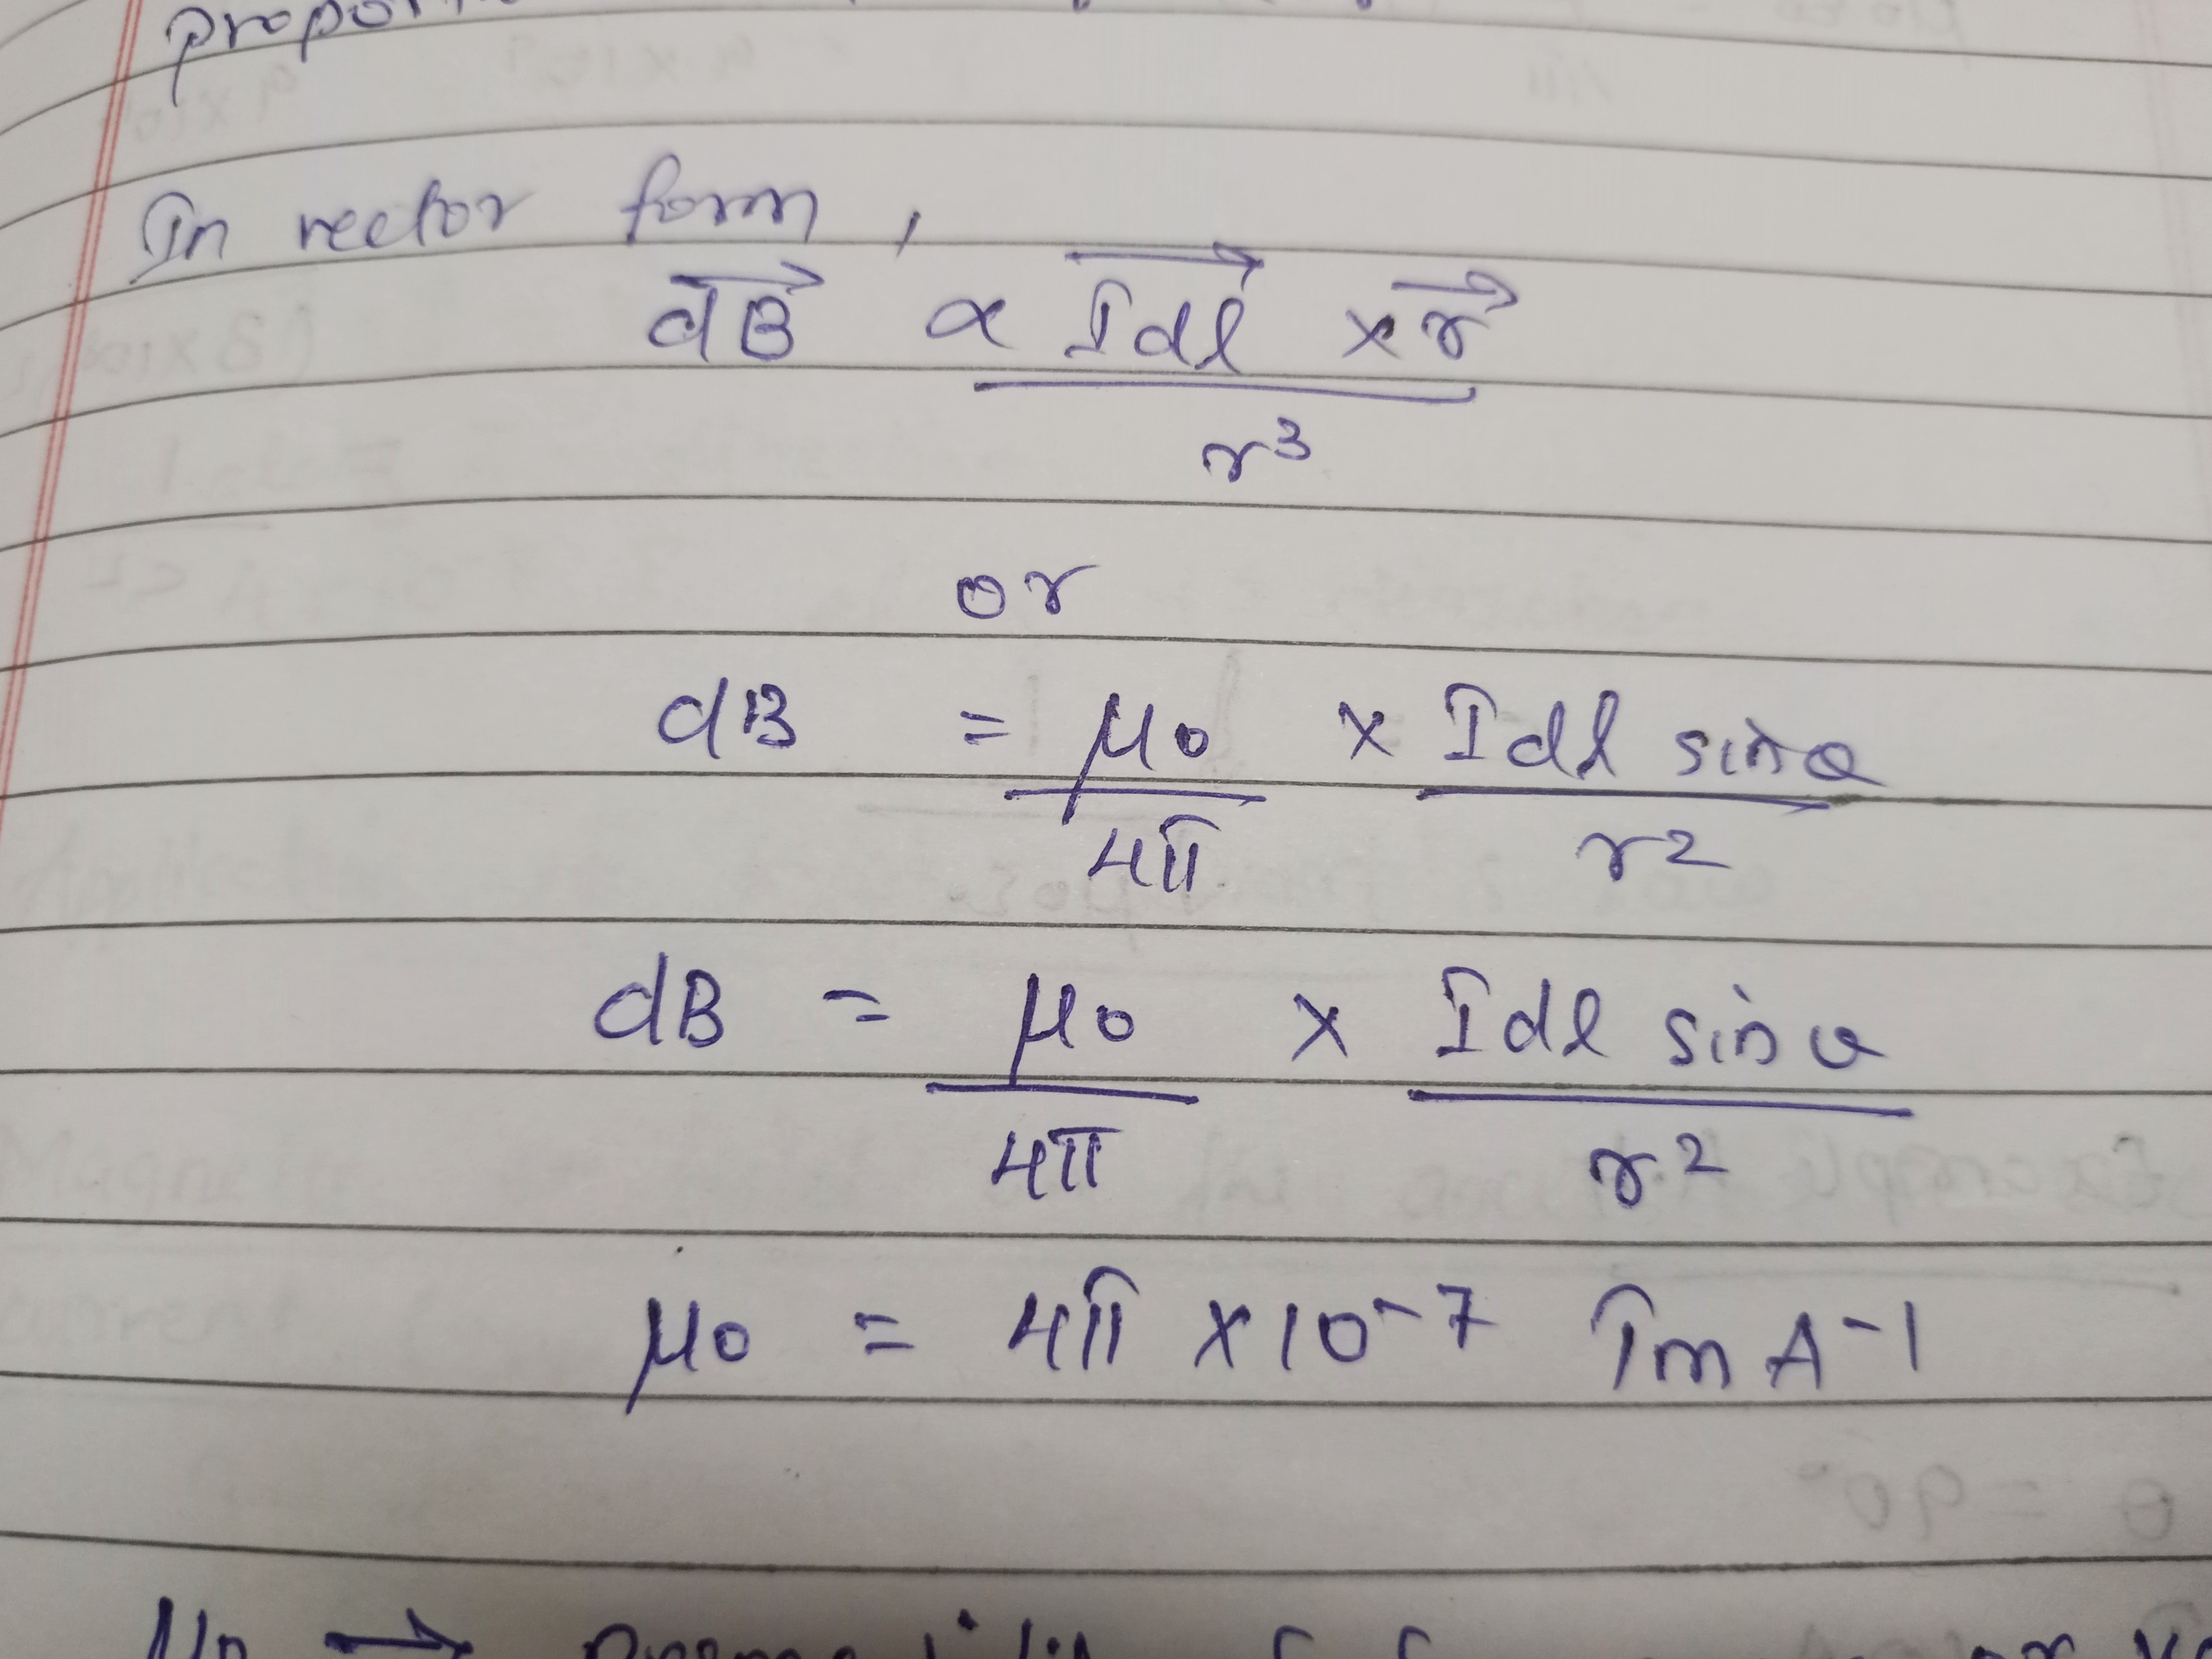 In vector form,
dB ∝ Idl × r
r³
or
dB = μ0 × Idl sinθ
4π r²
dB = μ0 × Idl sinθ
4π r²
μ0 = 4π × 10⁻⁷ Tm A⁻¹
μ0 →